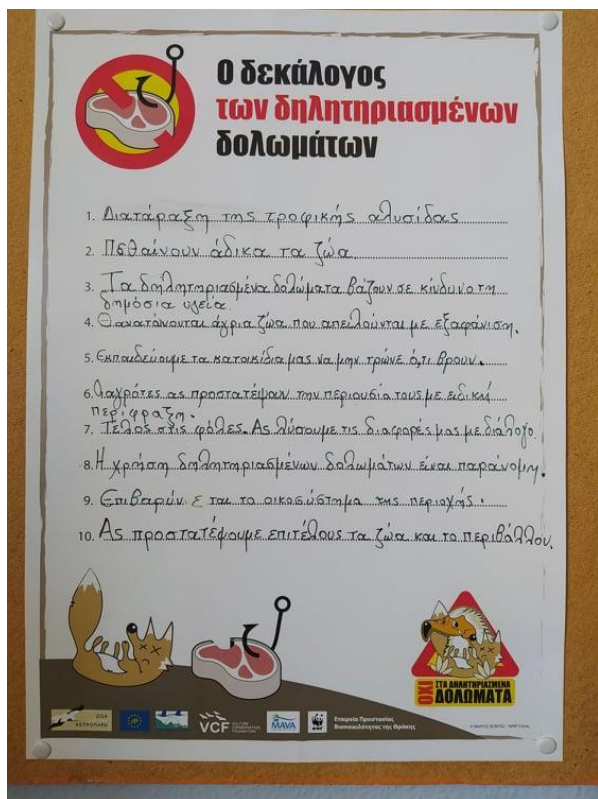 Ο δεκάλογος
των δηλητηριασμένων
δολωμάτων
1. Διατάραξη της τροφικής αλυσίδας
2. Πεθαίνουν άδικα τα ζώα.
3. Τα δηλητηριασμένα δολώματα βάζουν σε κίνδυνο τη
δημόσια υγεία.
4. Θανατώνονται άγρια ζώα που απειλούνται με εξαφάνιση.
5. Εκπαιδεύουμε τα κατοικίδια μας να μην τρώνε ό,τι βρουν.
6. Οι αγρότες ας προστατέψουν την περιουσία τους με ειδική
περίφραξη.
7. Τέλος στις φόλες. Ας λύσουμε τις διαφορές μας με διάλογο.
8. Η χρήση δηλητηριασμένων δολωμάτων είναι παράνομη.
9. Επιβαρύνεται το οικοσύστημα της περιοχής.
10. Ας προστατέψουμε επιτέλους τα ζώα και το περιβάλλον.
ΟΧΙ
ΣΤΑ ΔΗΛΗΤΗΡΙΑΣΜΕΝΑ
ΔΟΛΩΜΑΤΑ
VCF
VULTURE
CONSERVATION
FOUNDATION
MAVA
WWF
Εταιρεία Προστασίας
Βιοποικιλότητας της Θράκης